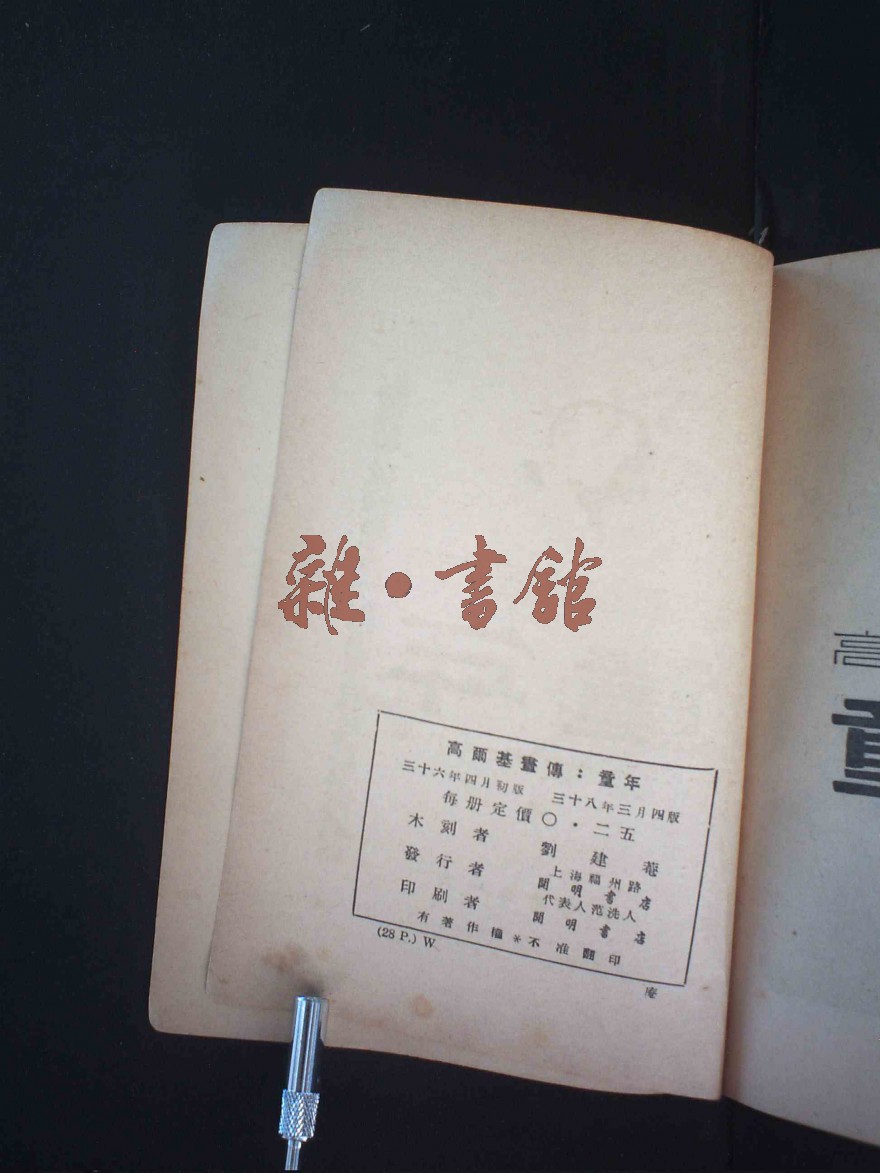 雜·書館
高爾基畫傳：童年
三十六年四月初版 三十八年三月四版
每册定價〇·二五
木刻者 劉建菴
發行者 上海福州路
開明書店
代表人范洗人
印刷者 開明書店
有著作權＊不准翻印
(28 P.) W
庵
高
童